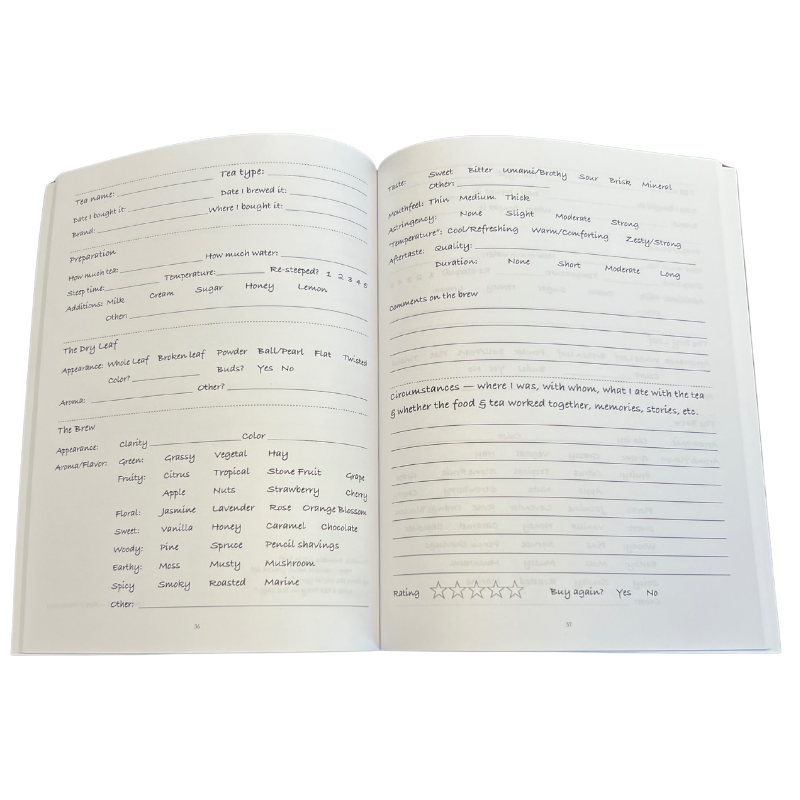 Tea name: Tea type:
Date I bought it: Date I brewed it:
Brand: Where I bought it:
Preparation
How much tea: How much water:
Steep time: Temperature: Re-steeped? 1 2 3 4 5
Additions: Milk Cream Sugar Honey Lemon
Other:
The Dry Leaf
Appearance: Whole Leaf Broken leaf Powder Ball/Pearl Flat Twisted
Color? Buds? Yes No
Aroma: Other?
The Brew
Appearance: Clarity Color
Aroma/Flavor: Green: Grassy Vegetal Hay
Fruity: Citrus Tropical Stone Fruit Grape
Apple Nuts Strawberry Cherry
Floral: Jasmine Lavender Rose Orange Blossom
Sweet: Vanilla Honey Caramel Chocolate
Woody: Pine Spruce Pencil shavings
Earthy: Moss Musty Mushroom
Spicy Smoky Roasted Marine
Other:
56
Taste: Sweet Bitter Umami/Brothy Sour Brisk Mineral
Other:
Mouthfeel: Thin Medium Thick
Astringency: None Slight Moderate Strong
"Temperature": Cool/Refreshing Warm/Comforting Zesty/Strong
Aftertaste: Quality:
Duration: None Short Moderate Long
Comments on the brew
Circumstances — where I was, with whom, what I ate with the tea
& whether the food & tea worked together, memories, stories, etc.
Rating Buy again? Yes No
57